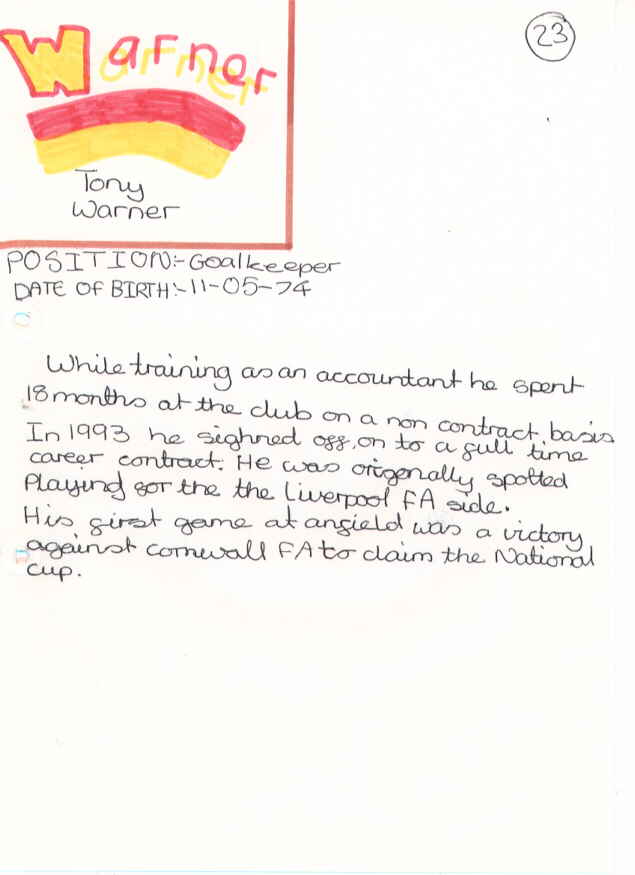 23
Warner
Tony
Warner
POSITION:- Goalkeeper
DATE OF BIRTH:- 11-05-74
While training as an accountant he spent
18 months at the club on a non contract basis
In 1993 he sighned off, on to a full time
career contract. He was origenally spotted
Playing for the the Liverpool FA side.
His first game at anfield was a victory
against cornwall FA to claim the National
cup.